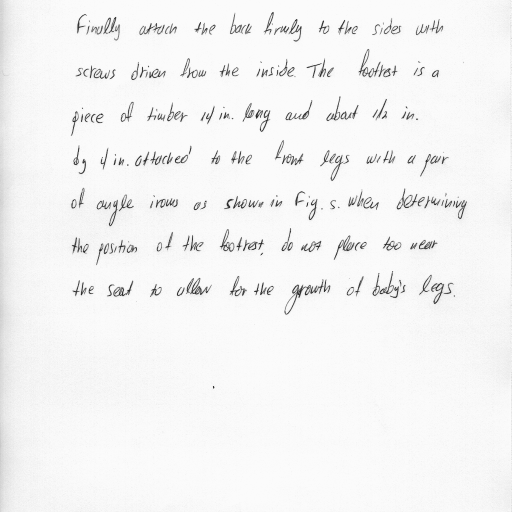 Finally attach the back firmly to the sides with
screws driven from the inside. The footrest is a
piece of timber 14 in. long and about 1/2 in.
by 4 in. attached to the front legs with a pair
of angle irons as shown in Fig. 5. when determining
the position of the footrest, do not place too near
the seat to allow for the growth of baby's legs.